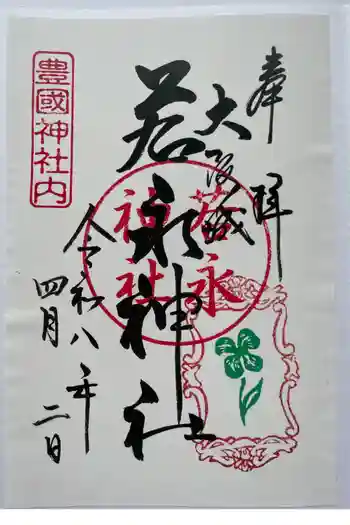 奉拝
大阪城
若永神社
若永
神社
豊國神社内
令和八年
四月二日